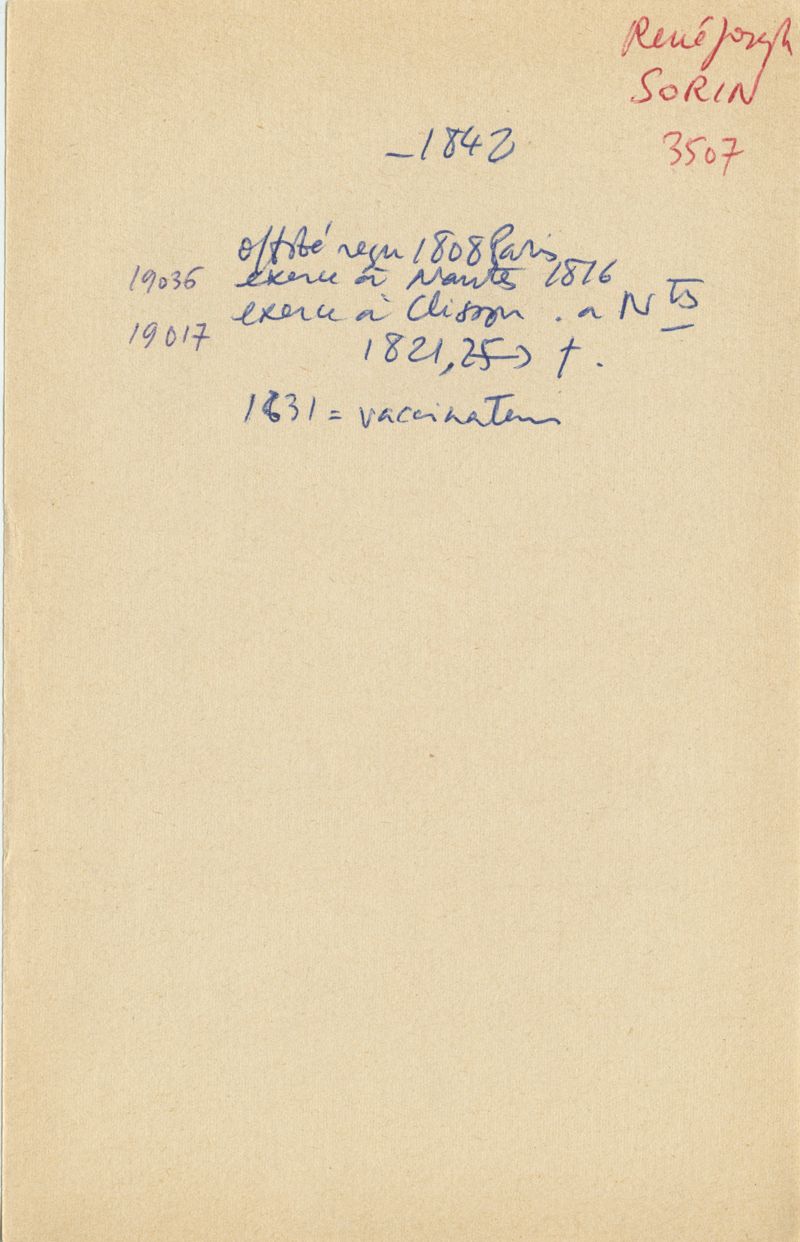 René Joseph
SORIN
3507
_1842
reçu 1808 Paris
19036 exerce à Nantes 1816
exerce à Clisson . a Nts
19017
1821, 25 → † .
1831 = vaccinateur